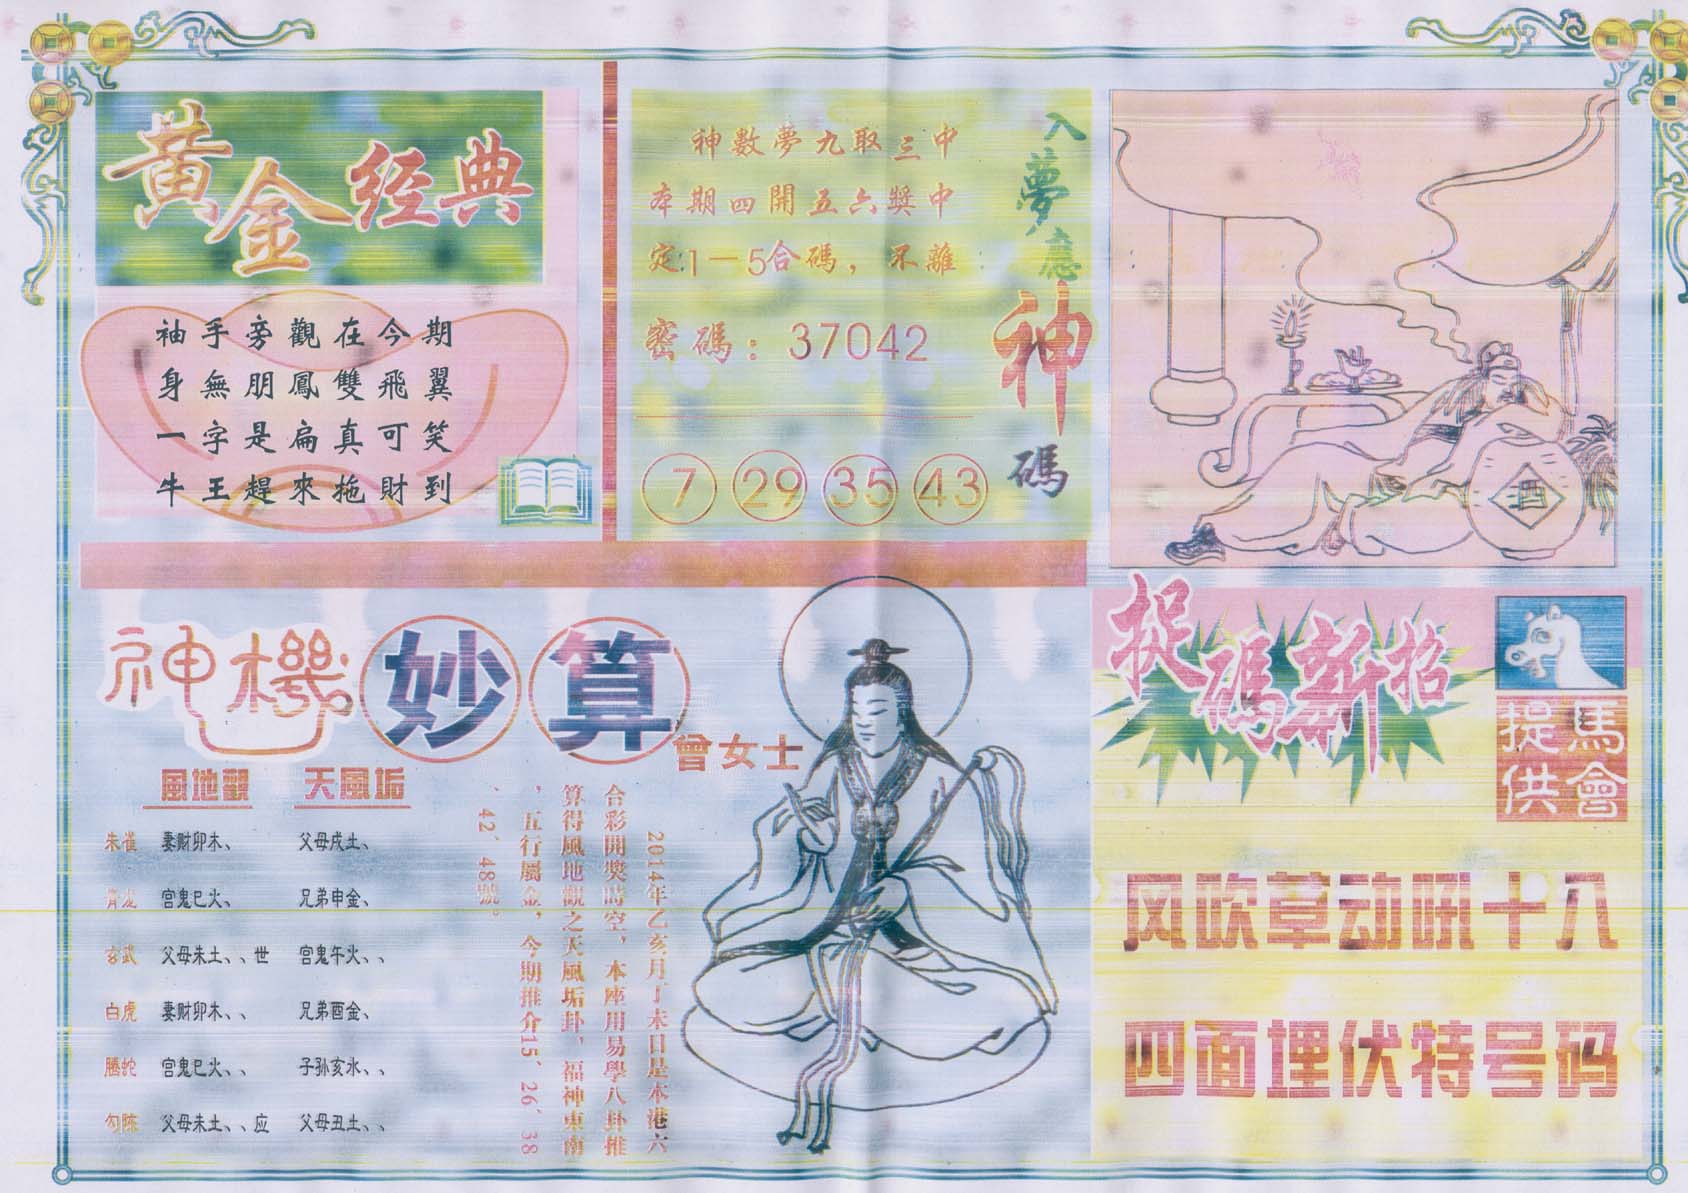 黃金经典
袖手旁觀在今期
身無朋鳳雙飛翼
一字是扁真可笑
牛王趕來拖財到
入夢應神碼
神數夢九取三中
本期四開五六獎中
定:1－5合碼，不離
密碼：37042
7 29 35 43
神機妙算
曾女士
風地觀 天風垢
朱雀 妻财卯木、 父母戌土、
青龙 官鬼巳火、 兄弟申金、
玄武 父母未土、、世 官鬼午火、、
白虎 妻财卯木、、 兄弟酉金、
騰蛇 官鬼巳火、、 子孙亥水、、
勾陈 父母未土、、应 父母丑土、、
2014年乙亥月丁未日是本港六
合彩開獎時空，本座用易學八卦推
算得風地觀之天風垢卦，福神東南
，五行屬金，今期推介15、26、38
、42、48號。
捉碼新招
馬會
提供
风吹草动吼十八
四面埋伏特号码